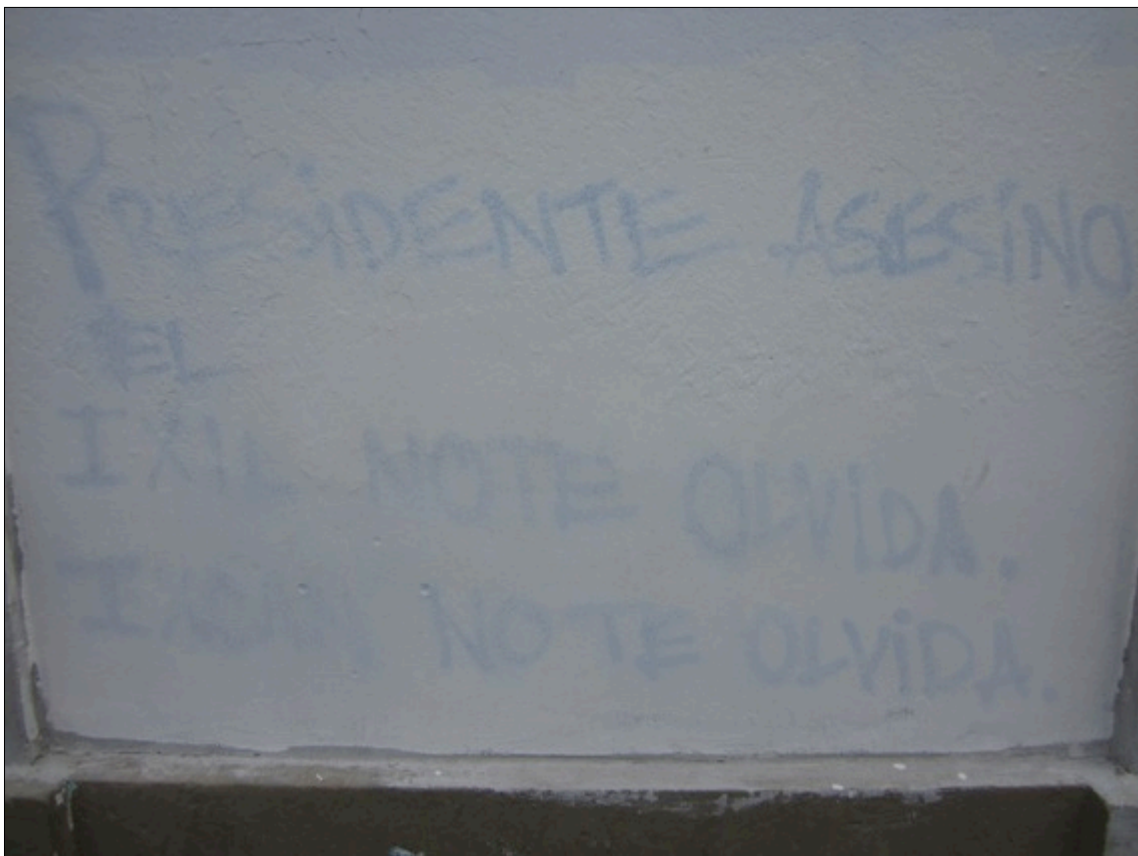 PRESiDENTE ASESiNO
EL
IXIL NO TE OLViDA.
IXCAN, NO TE OLViDA.